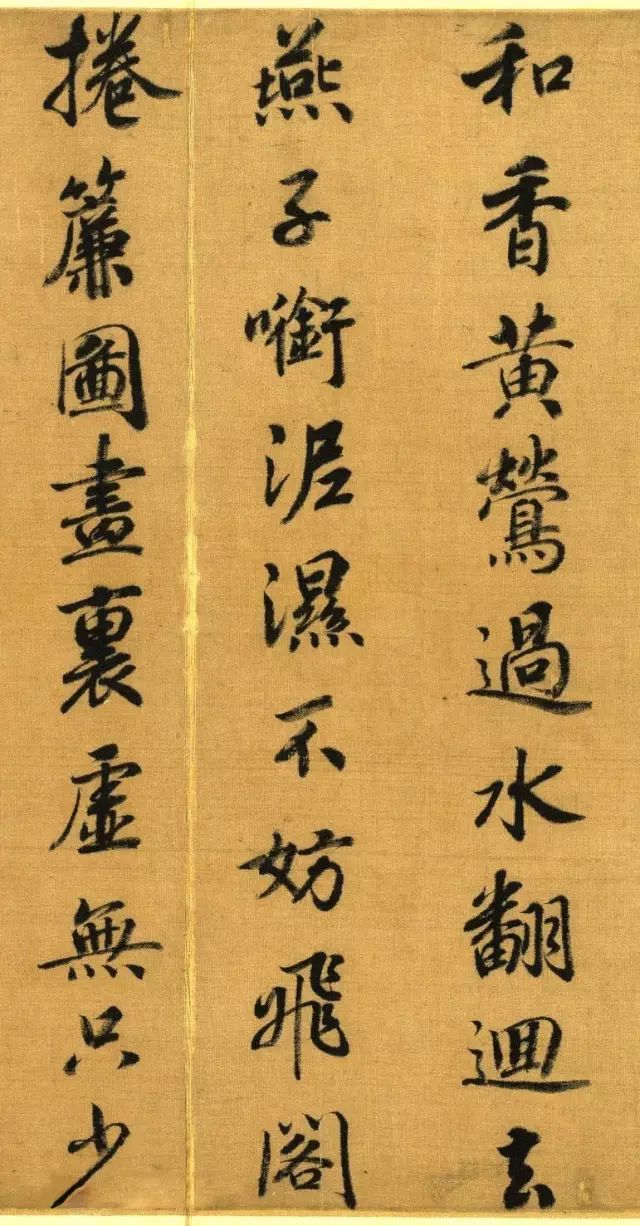 和香黃鶯過水翻迴去
燕子啣泥濕不妨飛閣
捲簾圖畫裏虛無只少